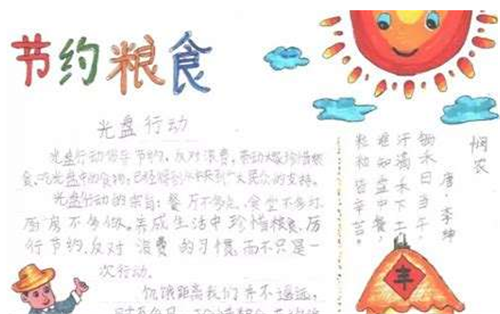 节约粮食
光盘行动
光盘行动倡导节约，反对浪费，带动大家珍惜粮
食、吃光盘中的食物，已经得到从中央到广大民众的支持。
光盘行动的宗旨：餐厅不多点，食堂不多打
厨房不多做。养成生活中珍惜粮食、厉
行节约、反对浪费的习惯，而不只是一
次行动。
饥饿距离我们并不遥远，
悯农
唐·李绅
锄禾日当午，
汗滴禾下土。
谁知盘中餐，
粒粒皆辛苦。
丰